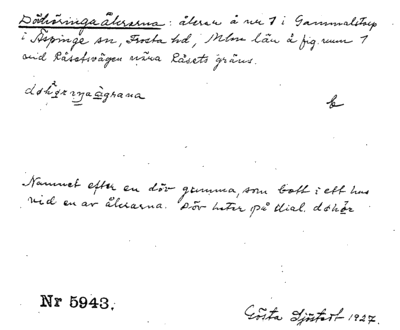 Döhöringaåkrarna: åkrar å nr 7 i Gammalstorp
i Äspinge sn, Frosta hd, Mlm län å fig.rum 1
vid Råsetsvägen nära Råsets gräns.
b
Namnet efter en döv gumma, som bott i ett hus
vid en av åkrarna. Döv heter på dial. dohör
Nr 5943.
Gösta Sjöstedt 1927.